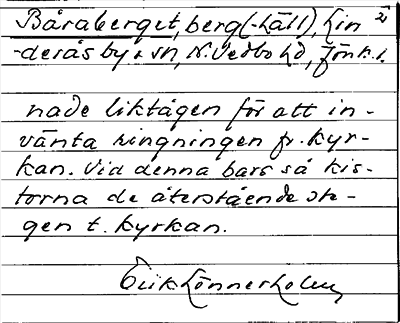 Båraberget, berg (-häll), Lin 2)
-derås by & sn, N. Vedbo hd, Jönk. l.
nade liktågen för att in-
vänta ringningen fr. kyr-
kan. Vid denna bars så kis-
torna de återstående ste-
gen t. kyrkan.
Erik Lönnerholm